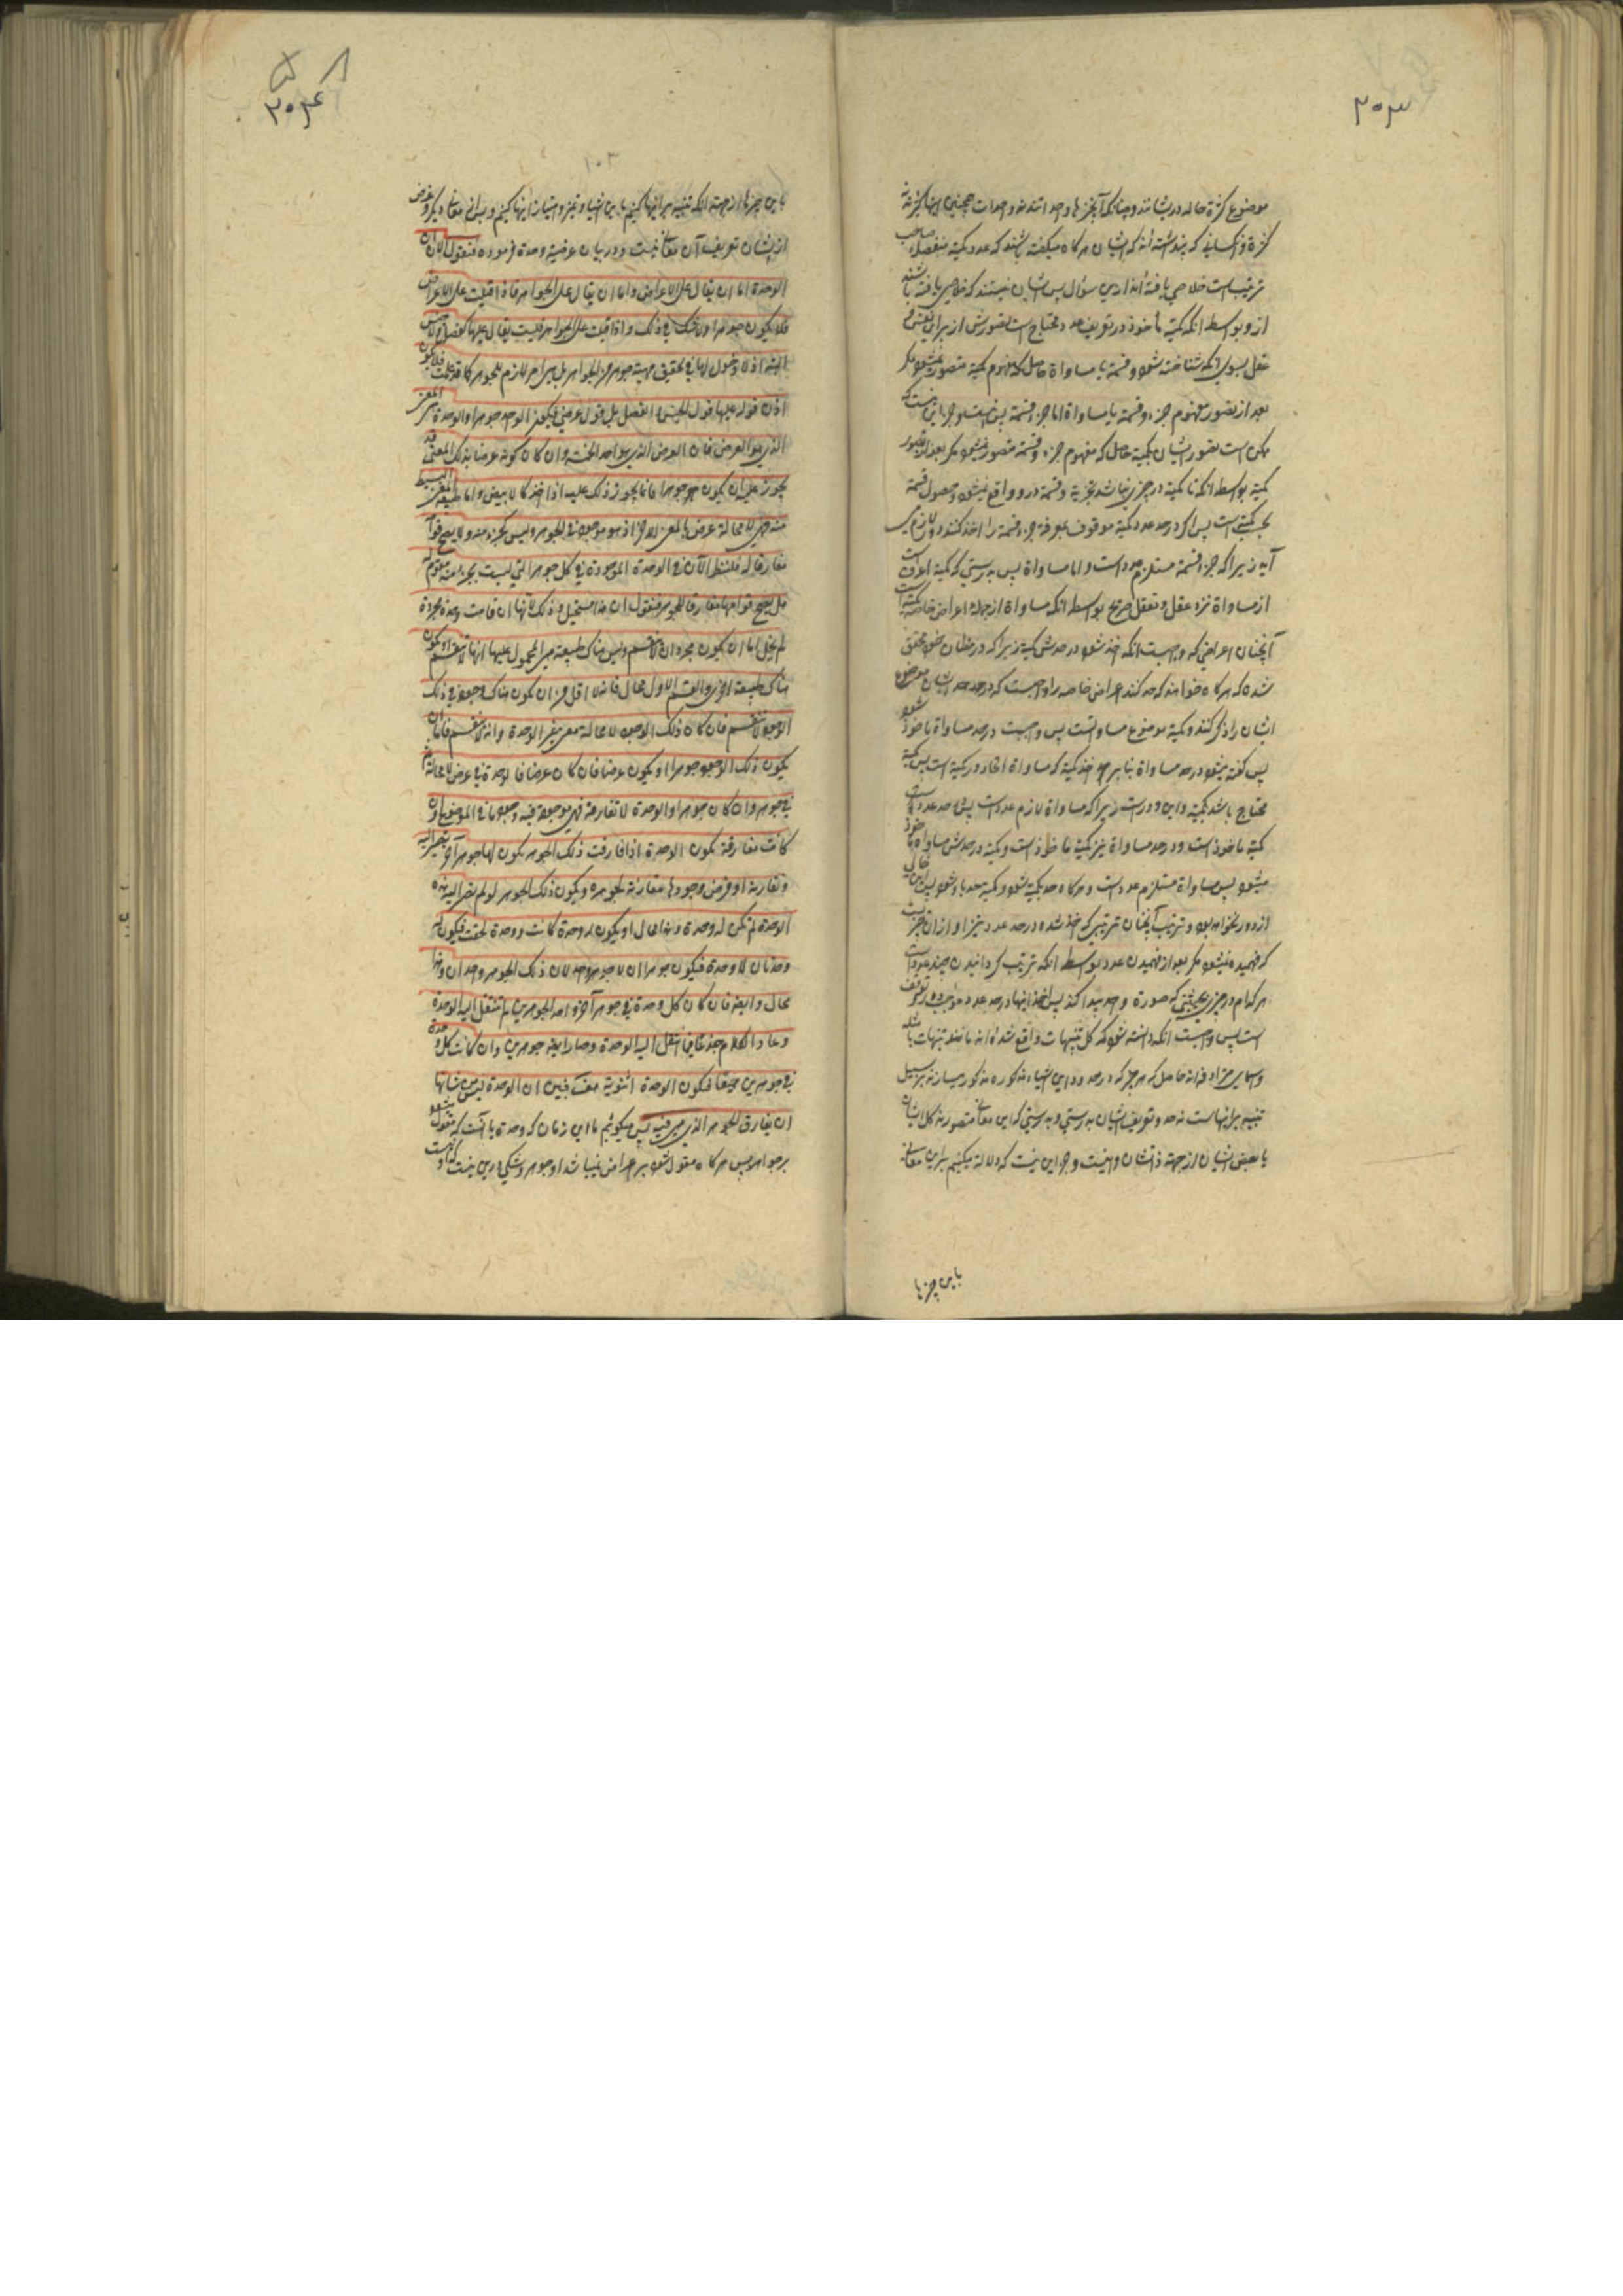 ۲۰۳
موضوع کثرة حاله در ایشانند و چنانکه آنچیزها وحداتند نه وحدات همچنین اینها کثرتند نه
کثرة و کسانی که پنداشته اند که ایشان هر کاه میکفته باشند که عدد کمیة منفصله صاحب
ترتیب است خلاصی یافته اند ازین سؤال پس ایشان نیستند که خلاصی یافته باشند
از و بواسطه انکه کمیة مأخوذ در تعریف عدد محتاج است تصورش از برای نفس
عقل بسوی انکه شناخته شود و قسمة یا مساواة حاصل که مفهوم کمیة متصور نمیشود مکر
بعد از تصور مفهوم جزء و قسمة یا مساواة اما جزء و قسمة پس نیست
ممکن است تصور ایشان بکمیة حاصل که مفهوم جزء و قسمة متصور نمیشود مکر بعد از تصور
کمیة بواسطه انکه تا کمیة در چیزی نباشد تجزیه و قسمة درو واقع نمیشود و حصول قسمة
بحسب کمیة است پس اکر در حد عدد کمیة موقوف بمعرفة جزء و قسمة را اخذ کنند دور لازم می
آید زیرا که جزء و قسمة مستلزم عدد است و اما مساواة پس به درستی که کمیة اعرف است
از مساواة نزد عقل و تعقل صریح بواسطه انکه مساواة از جمله اعراض خاصه کمیة است
آنچنان اعراضی که واجبست انکه اخذ شود در حدش کمیة زیرا که در مظان خود محقق
شده که هر کاه خواهند که حد کنند اعراض خاصه را واجبست که در حد ایشان موضوع
ایشان را ذکر کنند و کمیة موضوع مساواتست پس واجبست در حد مساواة ماخوذ شود
پس کفته میشود در حد مساواة بنا بر اخذ کمیة که مساواة اتحاد در کمیة است پس کمیة
محتاج باشد بکمیة و این دور است زیرا که مساواة لازم عدد است پس در حد عدد که
کمیة ماخوذ است و در حد مساواة نیز کمیة ماخوذ است و کمیة در حدش مساواة ماخوذ
میشود پس مساواة مستلزم عدد است و هر کاه حد بکمیة شود و کمیة حد باو شود پس این خالی
از دور نخواهد بود و ترتیب آنچنان ترتیبی که اخذ شده در حد عدد نیز او از ان چیز
که فهمیده نمیشود مکر بعد از فهمیدن عدد بواسطه انکه ترتیب کردانیدن چند عدد است
هر کدام در چیزی بحیثیتی که صورة واحد پیدا کند پس اخذ اینها در حد عدد موجب دور و توقف
است پس واجبست انکه دانسته شود که کل تنبیهات واقع شده اند مانند تنبیهات با مثله
و اسامی مترادفه حاصل که هر چیز که در حدود این اشیاء مذکوره مذکور میسازند بر سبیل
تنبیه بر انهاست نه حد و تعریف ایشان به درستی و به درستی که این معانی متصورند کل ایشان
یا بعض ایشان از جهة ذاتشان و نیست وجه این نیست که دلالة میکنیم بر این معانی
باین چیزها

۲۰۴
۱۰۳
باین چیزها از جهة انکه تنبیه بر اینها کنیم باین اشیاء و تمیز و امتیاز اینها کنیم و بس از معانی دیکر و غرض
ازیشان تعریف آن معانی نیست و در بیان عرضیة وحدة فرموده فنقول الان ان
الوحدة اما ان یقال علی الاعراض و اما ان یقال علی الجواهر فاذا قیلت علی الاعراض
فلا یکون جوهرا ولا شک فی ذلک و اذا قیلت علی الجواهر فلیست یقال علیها کفصل ولا جنس
البتة اذ لا دخول لها فی تحقیق مهیة جوهر من الجواهر بل هی امر لازم للجوهر کما قد علمت فلا یکون
اذن قوله علیها قول الجنس و الفصل بل قول عرضی فیکون الواحد جوهرا و الوحدة هی المعنی
الذی هو العرض فان العرض الذی هو احد الخمسة و ان کان کونه عرضا بذلک المعنی قد
یجوز علیه ان یکون جوهرا فانما یجوز ذلک علیه اذا اخذ کالابیض و اما طبیعة المعنی البسیط
منه فهی لا محالة عرض بالمعنی الاخر اذ هو موجود فی الجوهر و لیس کجزء منه و لا یصح قوامه
مفارقا له فلننظر الآن فی الوحدة الموجودة فی کل جوهر التی لیست بجزء منه مقوم له
هل یصح قوامها مفارقا للجوهر فنقول ان هذا مستحیل و ذلک لانها ان قامت وحدة مجردة
لم یخل اما ان یکون مجرد ان لا ینقسم و لیس هناک طبیعة هی المحمول علیها انها لا تنقسم او یکون
هناک طبیعة اخری و القسم الاول محال فانه لا اقل من ان یکون هناک وجود فی ذلک
الوجود لا ینقسم فان کان ذلک الوجود لا محالة معنی غیر الوحدة و انه لا ینقسم فاما ان
یکون ذلک الوجود جوهرا او یکون عرضا فان کان عرضا فالوحدة فی عرض لا محالة ثم
فی جوهر و ان کان جوهرا و الوحدة لا تفارقه فهی موجودة فیه وجود ما فی الموضوع و ان
کانت مفارقة یکون الوحدة اذا فارقت ذلک الجوهر یکون لها جوهر آخر یصیر الیه
و تقارنه اذ فرض وجودها مقارنة لجوهر و یکون ذلک الجوهر لو لم یصر الیه هذه
الوحدة لم تکن له وحدة و هذا محال او یکون له وحدة کانت و وحدة لحقت فیکون له
وحدتان لا وحدة فیکون جوهران لا جوهر واحد لان ذلک الجوهر واحدان و هذا
محال و ایضا فان کان کل وحدة فی جوهر آخر فاحد الجوهرین لم تنتقل الیه الوحدة
و عاد الکلام جذعا فیما انتقل الیه الوحدة و صار ایضا جوهرین و ان کانت کل وحدة
فی جوهرین جمیعا فیکون الوحدة اثنویة هف فبین ان الوحدة لیس من شانها
ان یفارق الجوهر الذی هی فیه پس میکوئیم ما این زمان که وحدة یا آنست که مقول میشود
بر جواهر پس هر کاه مقول شود بر اعراض نمیباشد او جوهر و شکی درین نیست